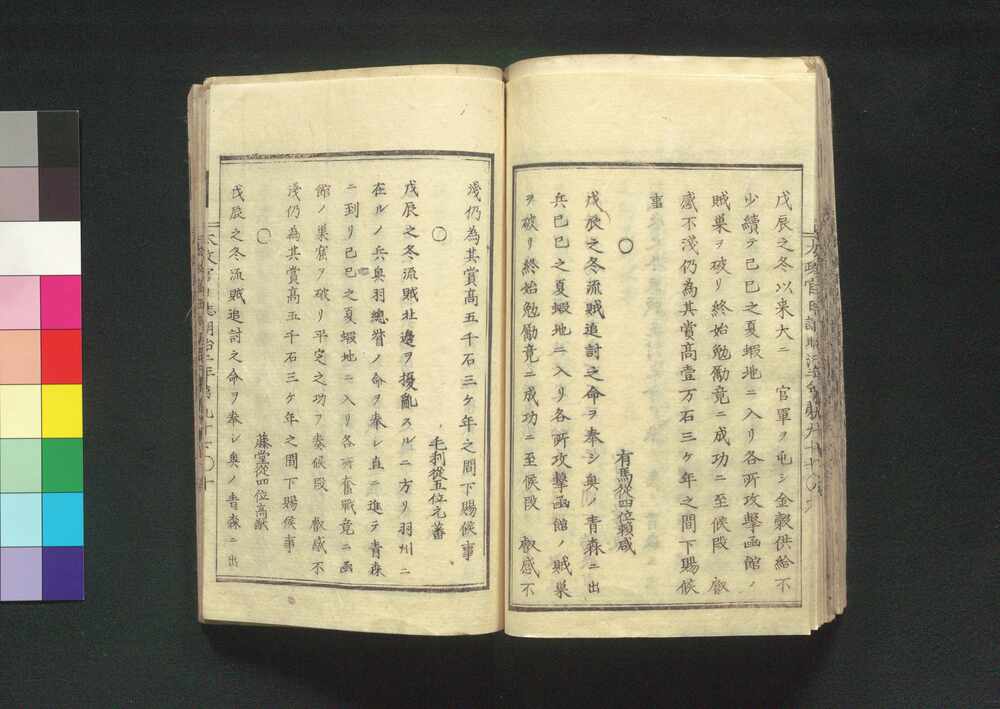 戊辰之冬以来大ニ　官軍ヲ屯シ金穀供給不
少續テ己巳之夏蝦地ニ入リ各所攻撃函館ノ
賊巣ヲ破リ終始勉勵竟ニ成功ニ至候段　叡
感不淺仍為其賞高壹万石三ケ年之間下賜候
事
〇
有馬從四位頼咸
戊辰之冬流賊追討之命ヲ奉シ奥ノ青森ニ出
兵己巳之夏蝦地ニ入リ各所攻撃函館ノ賊巣
ヲ破リ終始勉勵竟ニ成功ニ至候段　叡感不
淺仍為其賞高五千石三ケ年之間下賜候事
〇
毛利從五位元蕃
戊辰之冬流賊北邊ヲ擾亂スルニ方リ羽州ニ
在ルノ兵奥羽總督ノ命ヲ奉シ直ニ進テ青森
ニ到リ己巳之夏蝦地ニ入リ各所奮戰竟ニ函
館ノ巣窟ヲ破リ平定之功ヲ奏候段　叡感不
淺仍為其賞高五千石三ケ年之間下賜候事
〇
藤堂從四位高猷
戊辰之冬流賊追討之命ヲ奉シ奥ノ青森ニ出
太政官日誌明治二年第九十